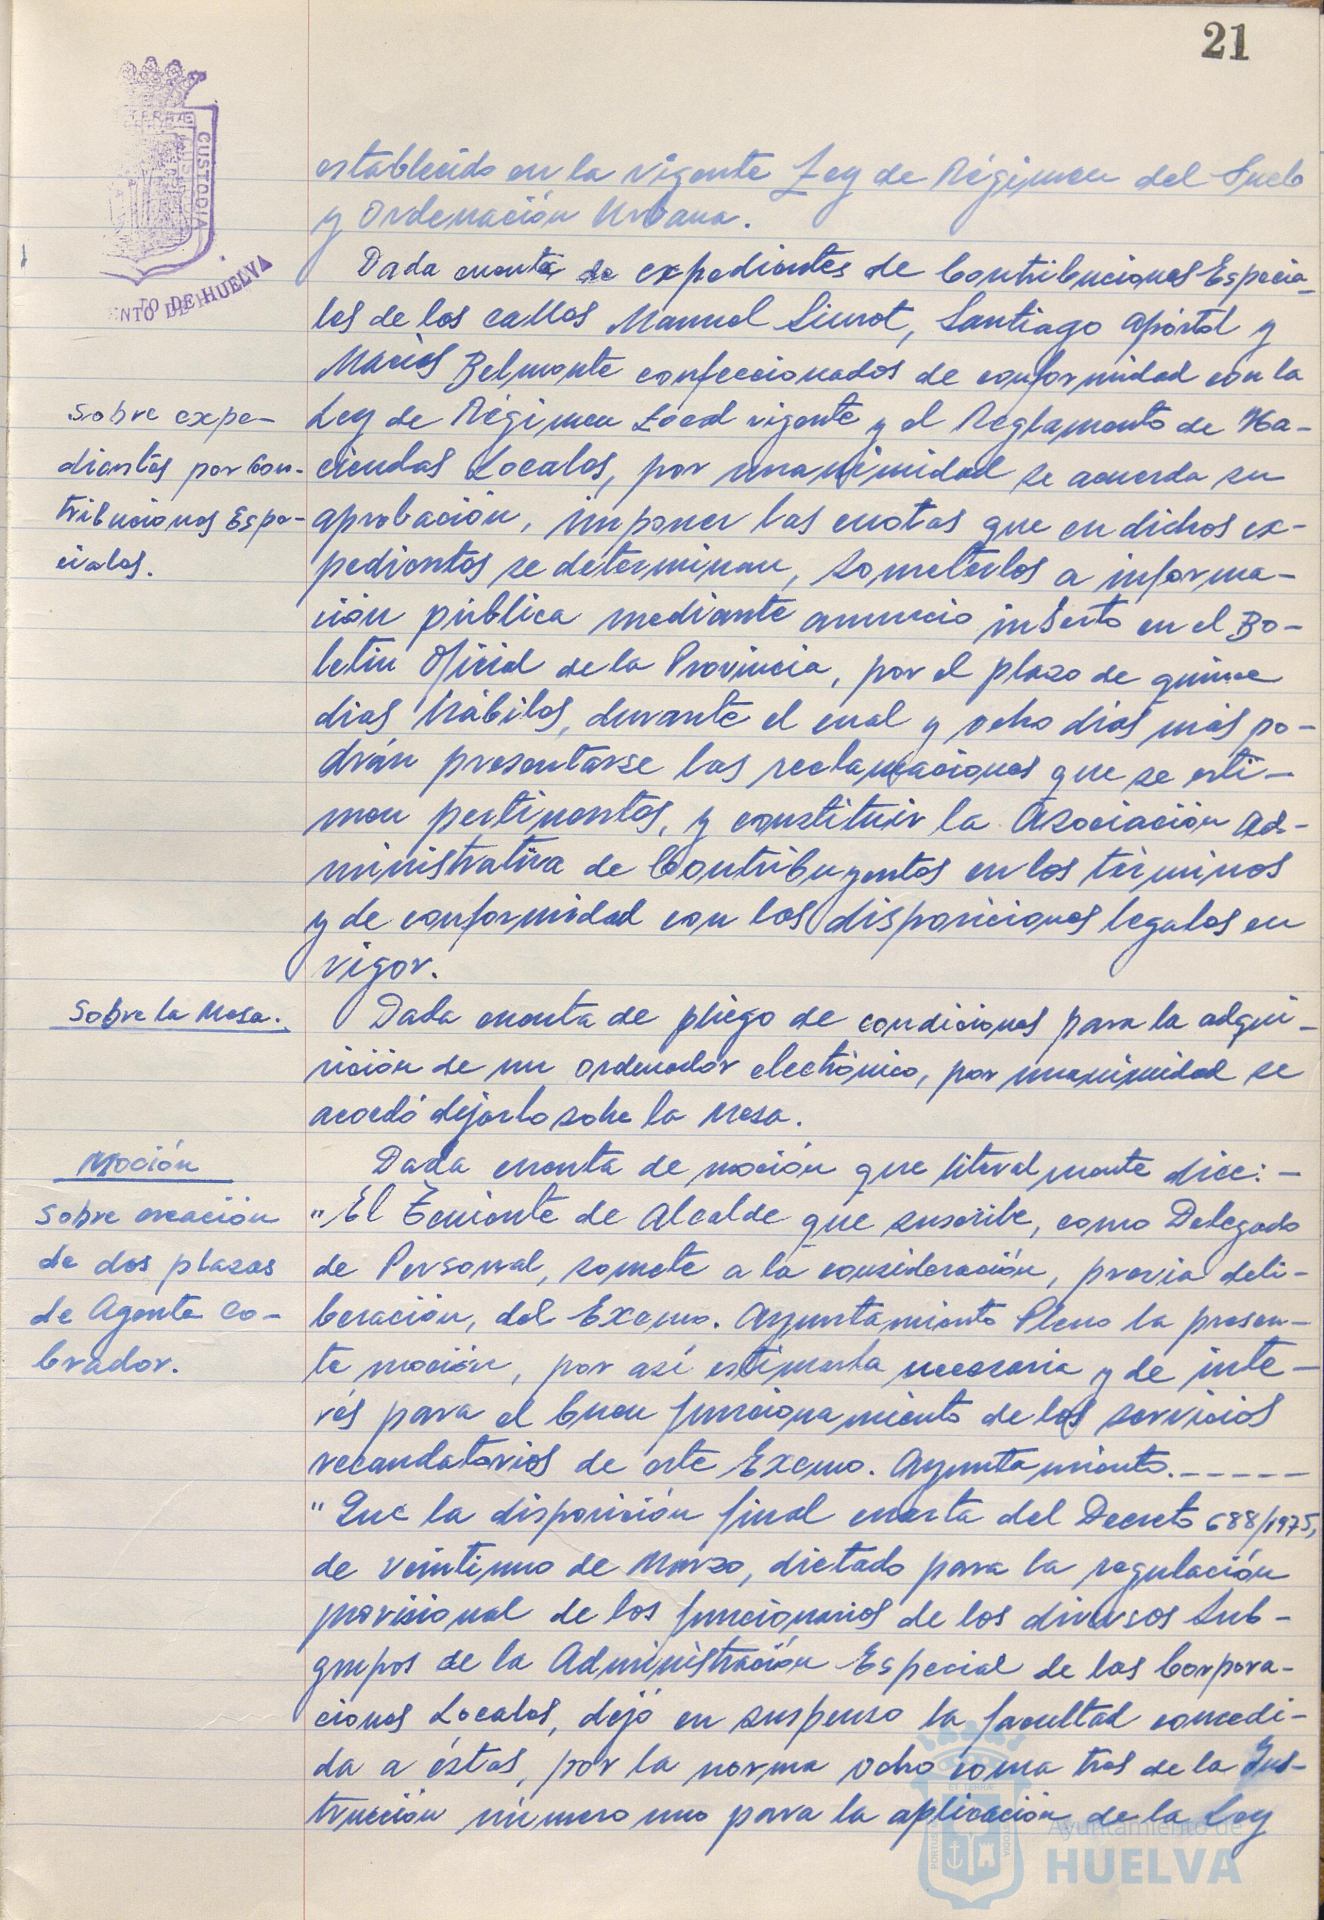 21
TERRÆ
CUSTODIA
ENTO DE HUELVA
establecido en la vigente Ley de Régimen del Suelo
y Ordenación Urbana.
Sobre expe-
dientes por Con-
tribuciones Espe-
ciales.
Dada cuenta de expedientes de Contribuciones Especia-
les de las calles Manuel Siurot, Santiago Apóstol y
Macías Belmonte confeccionados de conformidad con la
Ley de Régimen Local vigente y el Reglamento de Ha-
ciendas Locales, por unanimidad se acuerda su
aprobación, imponer las cuotas que en dichos ex-
pedientes se determinan, someterlos a informa-
ción pública mediante anuncio inserto en el Bo-
letin Oficial de la Provincia, por el plazo de quince
dias hábiles, durante el cual y ocho dias más po-
drán presentarse las reclamaciones que se esti-
men pertinentes, y constituir la Asociación Ad-
ministrativa de Contribuyentes en los términos
y de conformidad con las disposiciones legales en
vigor.
Sobre la Mesa.
Dada cuenta de pliego de condiciones para la adqui-
sición de un ordenador electrónico, por unanimidad se
acordó dejarlo sobre la Mesa.
Moción
Sobre creación
de dos plazas
de Agente Co-
brador.
Dada cuenta de moción que literalmente dice: -
"El Teniente de Alcalde que suscribe, como Delegado
de Personal, somete a la consideración, previa deli-
beración, del Excmo. Ayuntamiento Pleno la presen-
te moción, por asi estimarla necesaria y de inte-
rés para el buen funcionamiento de los servicios
recaudatorios de este Excmo. Ayuntamiento.-----
"Que la disposición final cuarta del Decreto 688/1975,
de veintiuno de Marzo, dictado para la regulación
provisional de los funcionarios de los diversos Sub-
grupos de la Administración Especial de las Corpora-
ciones Locales, dejó en suspenso la facultad concedi-
da a éstas, por la norma ocho coma tres de la Ins-
trucción número uno para la aplicación de la Ley
Ayuntamiento de
HUELVA